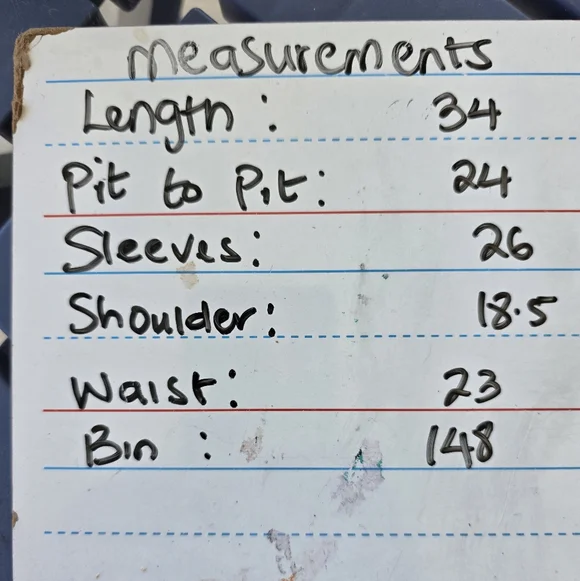 measurements
Length : 34
Pit to Pit: 24
Sleeves: 26
Shoulder: 18.5
Waist: 23
Bin : 148